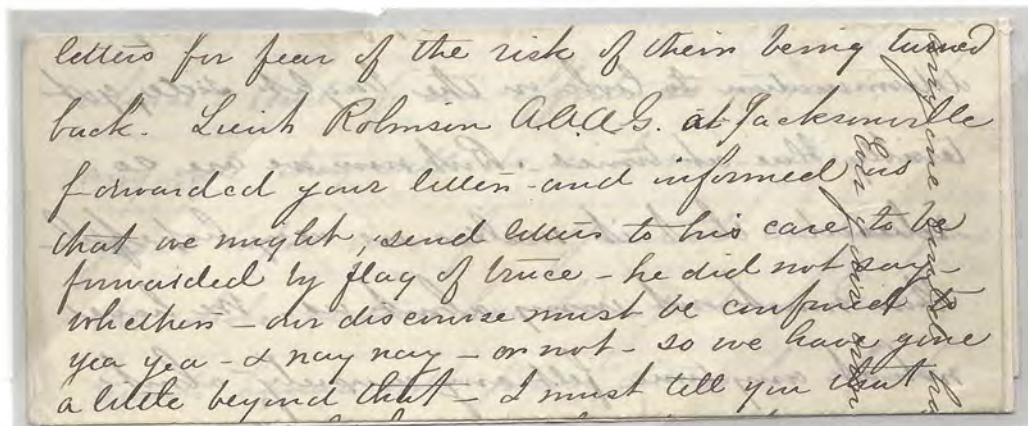 letters for fear of the risk of their being turned
back. Lieut Robinson A.A.A.G. at Jacksonville
forwarded your letter - and informed us
that we might, send letters to his care to be
forwarded by flag of truce - he did not say -
whether - our discourse must be confined
yea yea - & nay nay - or not - so we have gone
a little beyond that - I must tell you that